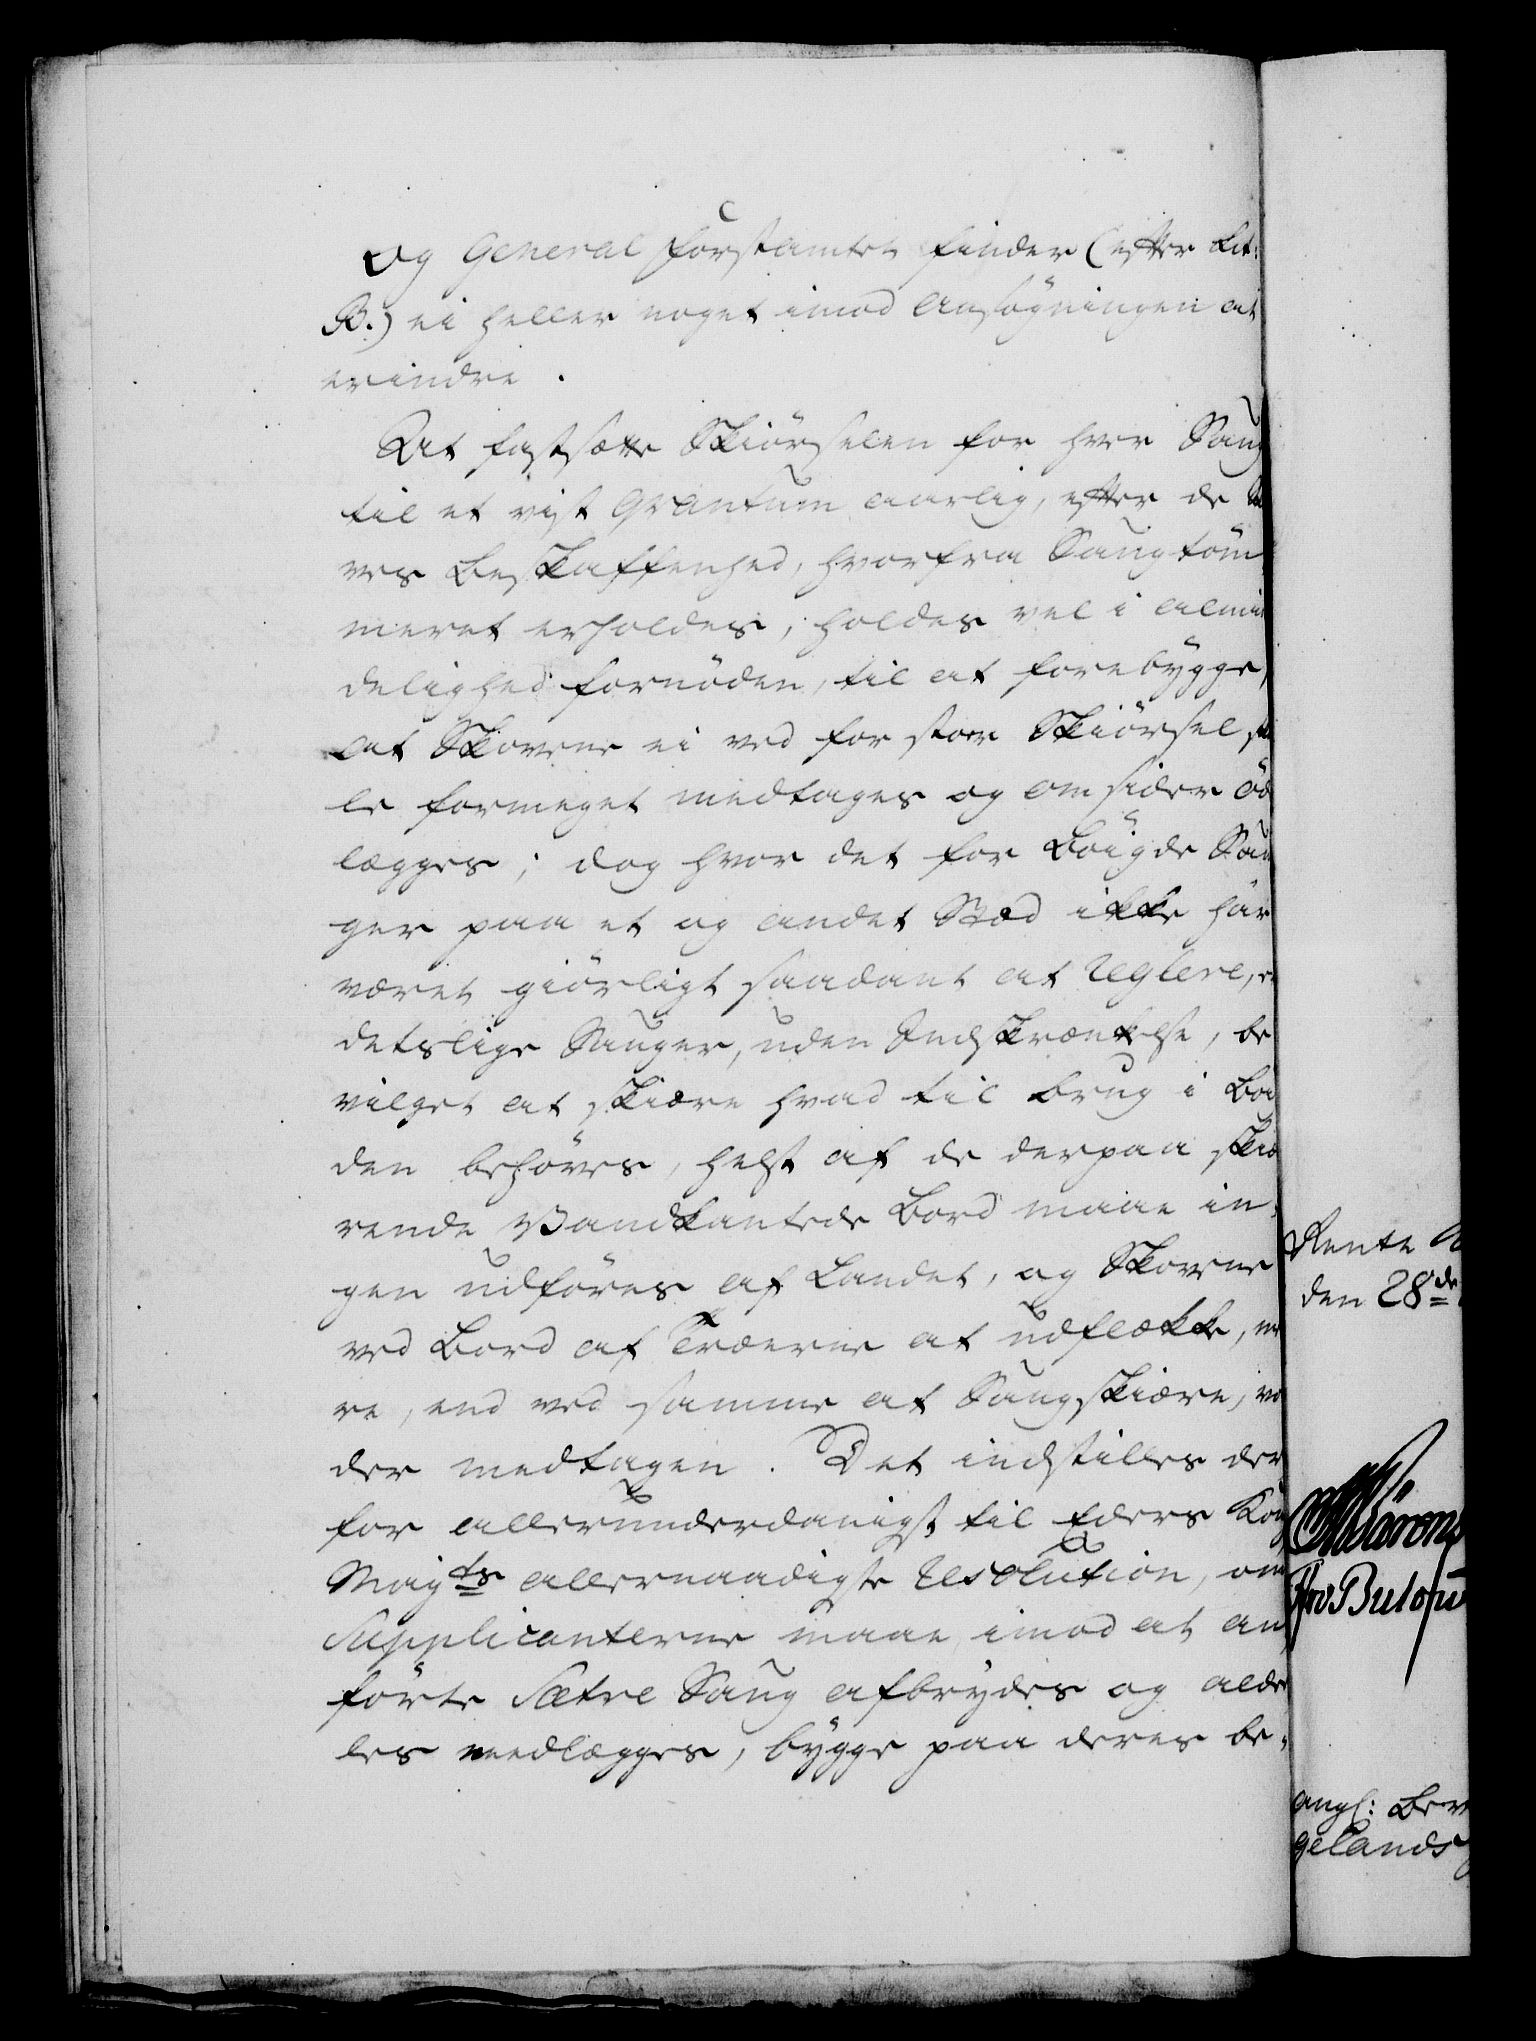 og General Forstamtet finder (efter Lit:
B.) ei heller noget imod Ansøgningen at
erindre.
At fastsætte Skiørselen for hver Saug
til et vist Qvantum aarlig, efter de
ves Beskaffenhed, hvorfra Saugtøm
meret erholdes, holdes vel i almin
delighed fornøden, til at forebygge,
at Skovene ei ved for stor Skiørsel
le formeget medtages og omsider öd
lægges; dog hvor det for Bøigde Sau
ger paa et og andet Stæd ikke har
været giørligt saadant at reglere, er
detslige Sauger, uden Indskrænkelse, be
vilget at skiære hvad til brug i Boi
den behøves, helst af de derpaa skiæ
rende Vandkantede Bord maae in-
gen udføres af Landet, og Skovene
ved Bord af Træerne at udflække, me
re, end ved samme at Saugskiære, vor
der medtagen. Det indstilles der
for allerunderdanigst til Eders Kong
Mayts allernaadigste Resolution, om
Supplicanterne maae, imod at an
førte Sætre Saug afbrydes og alde
les nedlægges, bygge paa deres be-
Rente
den 28de
angl: Ber
gelands